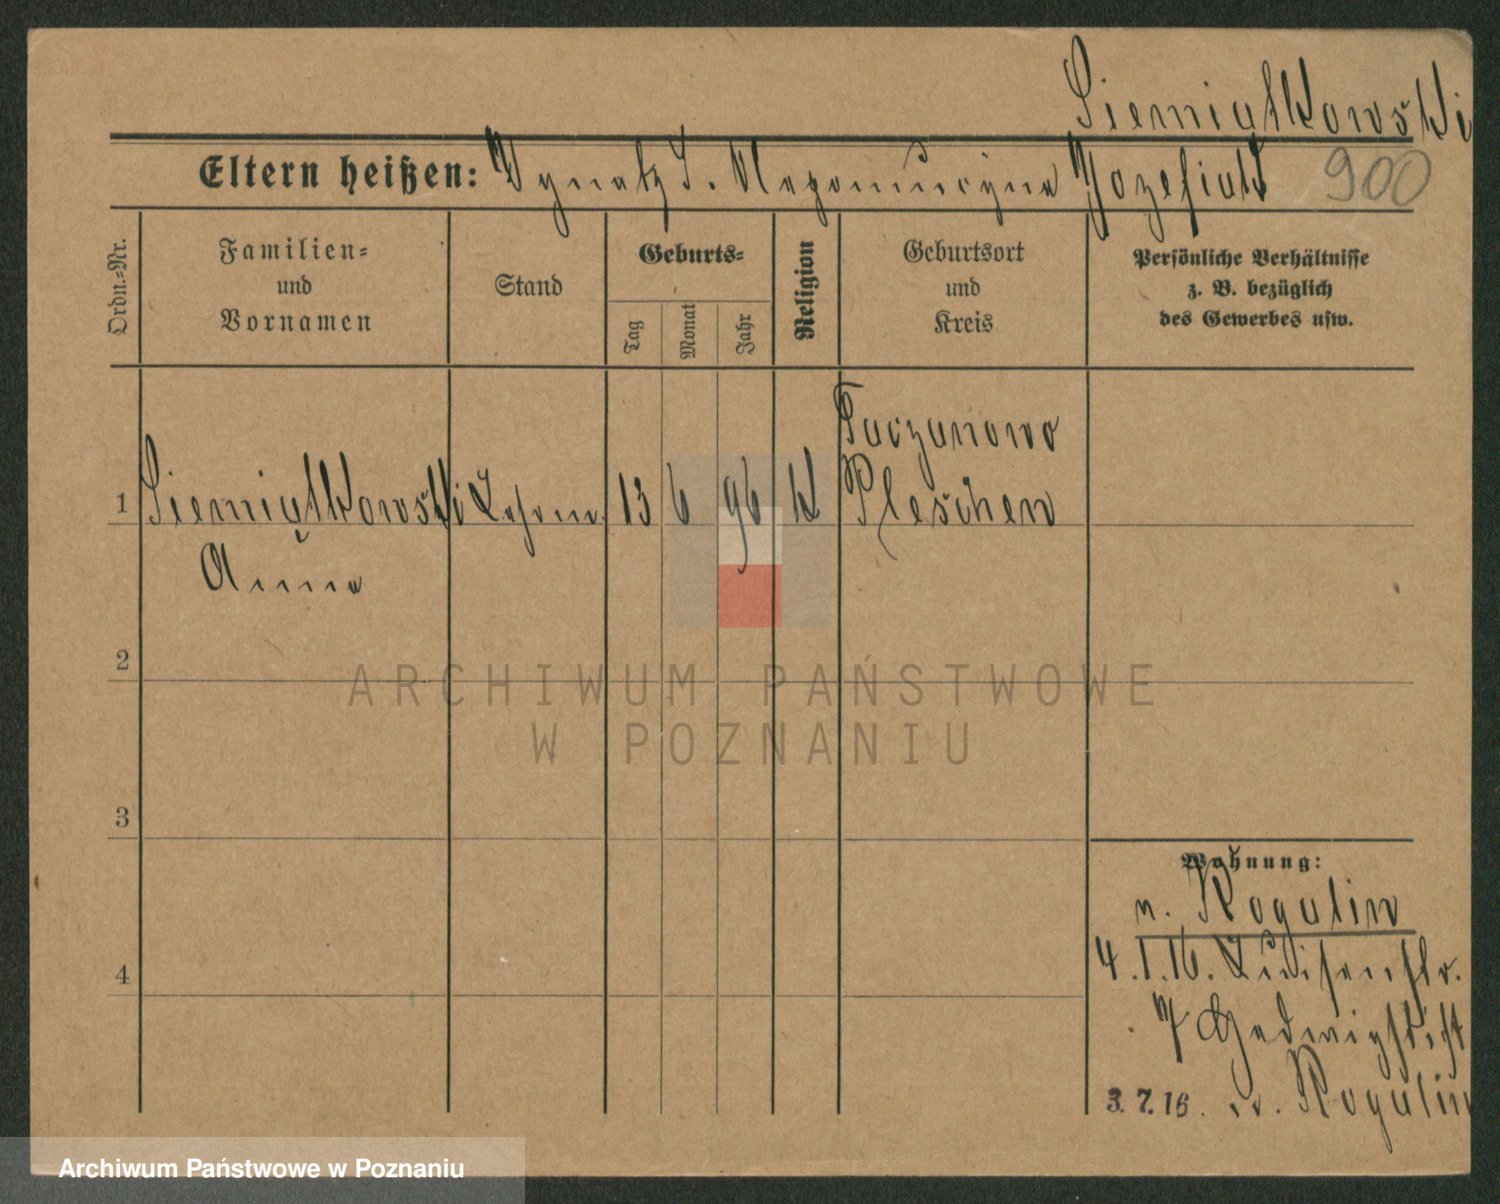 Siemiątkowski
Eltern heißen: Ignatz u. Nepomucyna Józefiak 900
Ordn.=Nr.
Familien=
und
Vornamen
Stand
Geburts=
Tag
Monat
Jahr
Religion
Geburtsort
und
Kreis
Persönliche Verhältnisse
z. B. bezüglich
des Gewerbes usw.
1 Siemiątkowski 13 6 96 k Taczanowo
Pleschen
Anna
2
3
4
Wohnung:
n. Rogalin
4.1.16. Luisenstr.
7 Hedwigstift
3.7.16. n. Rogalin
ARCHIWUM PAŃSTWOWE
W POZNANIU
Archiwum Państwowe w Poznaniu